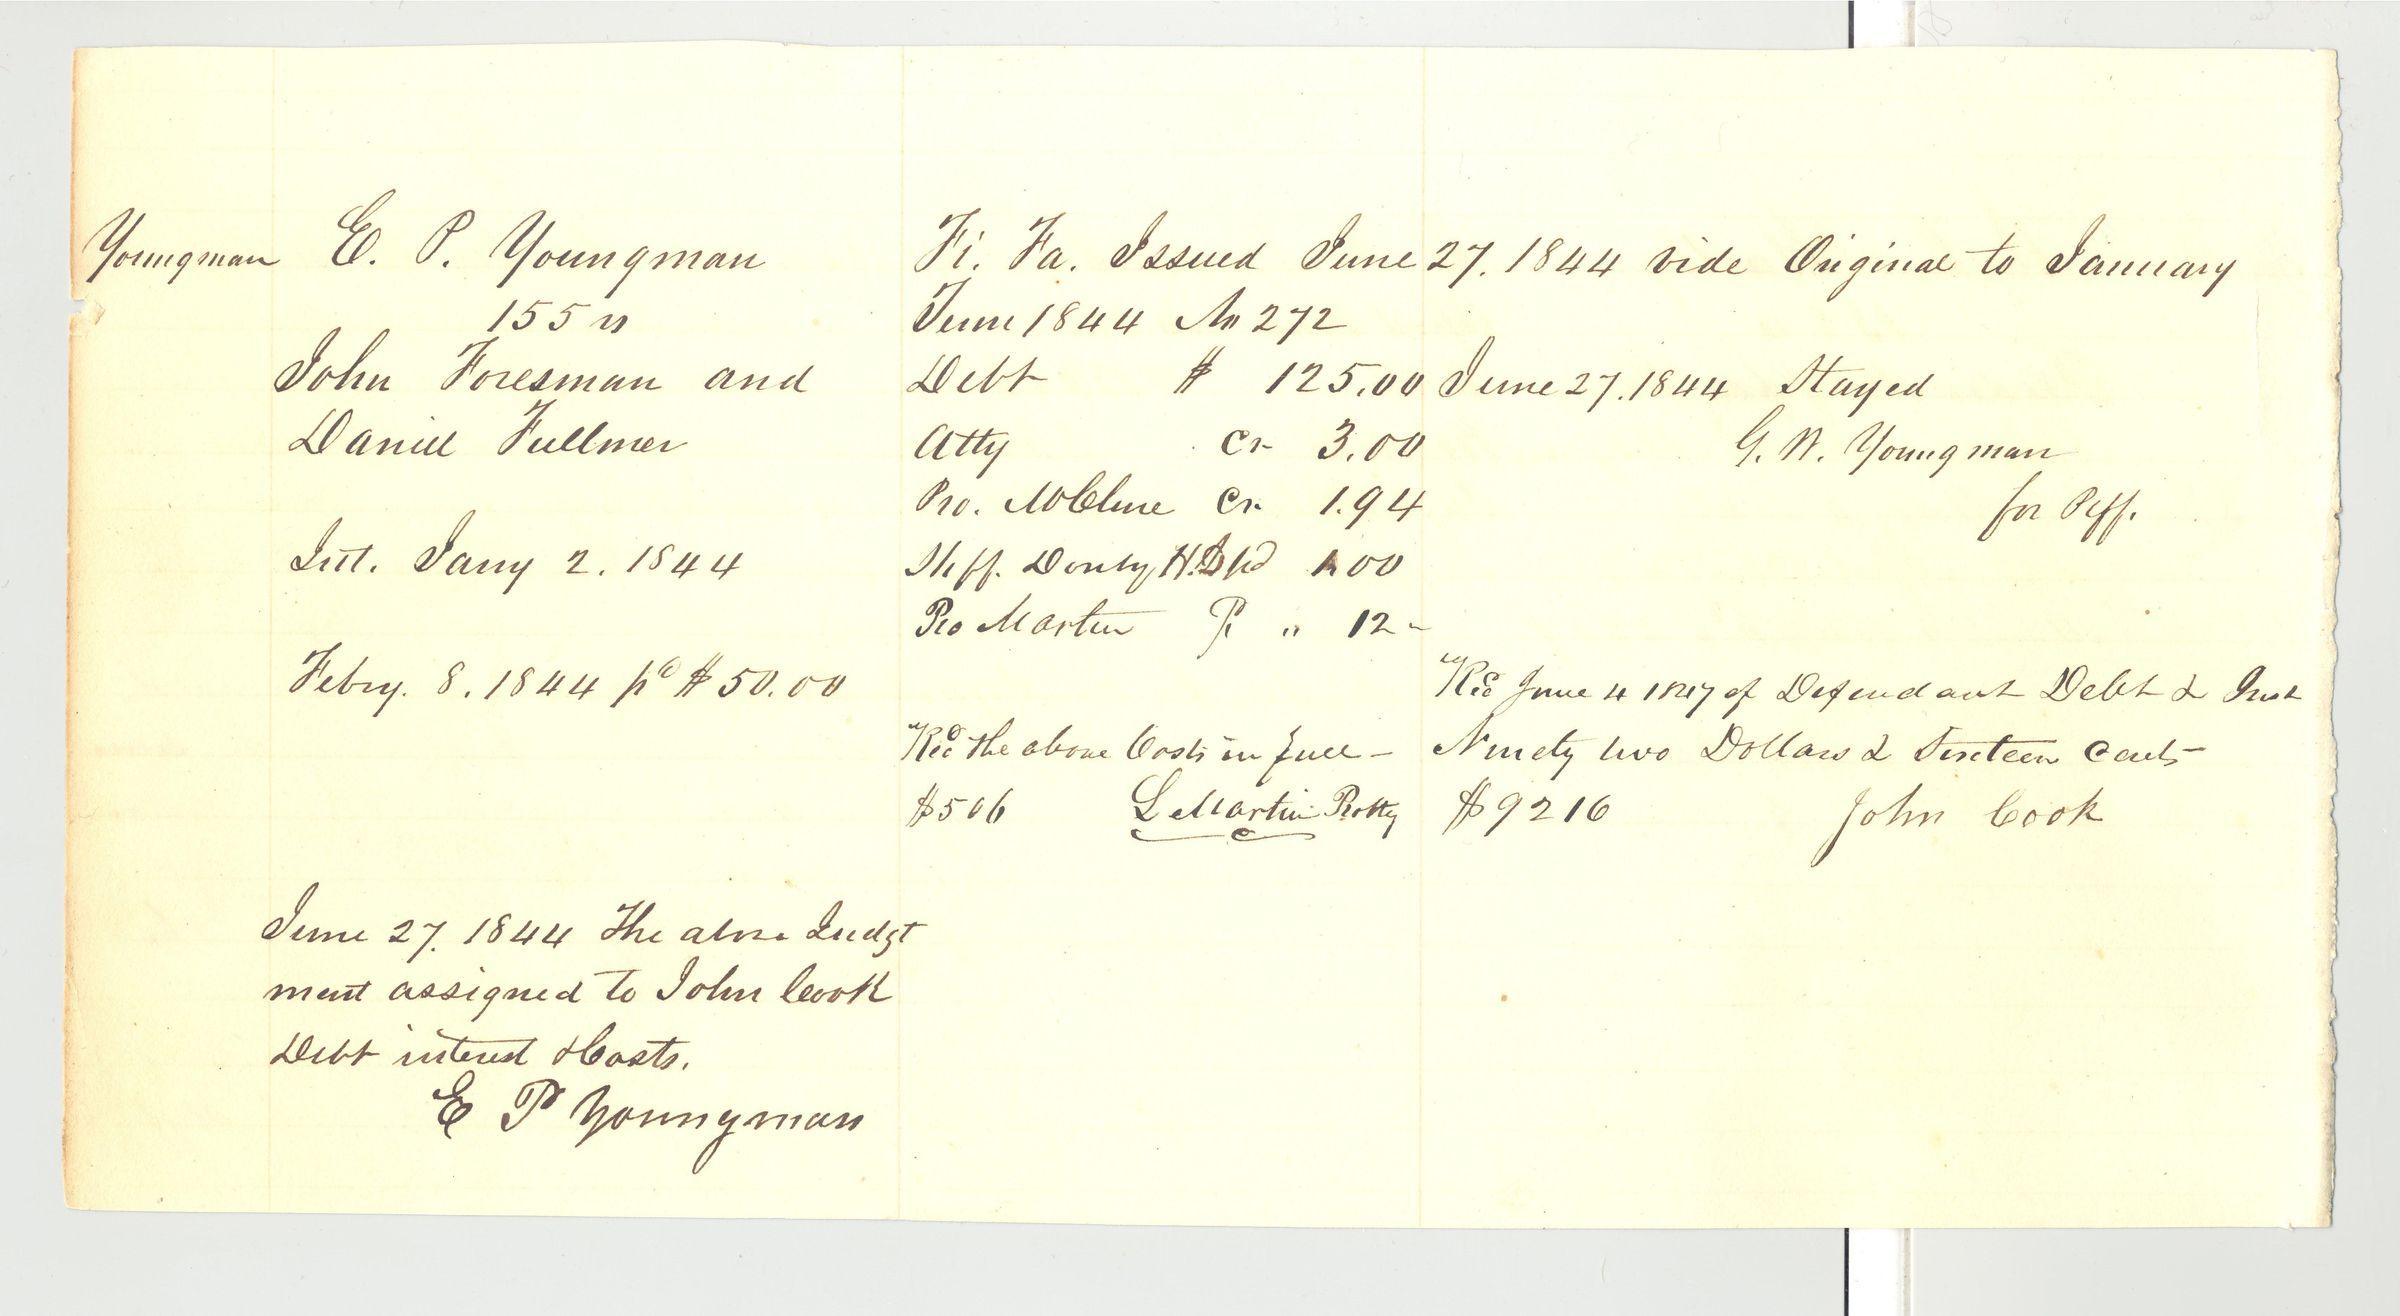 Youngman E. P. Youngman
155 vs
John Foresman and
Daniel Fullmer
Int. Jany 2. 1844
Febry. 8. 1844 pd $50.00
June 27. 1844 The above Judgt
ment assigned to John Cook
Debt interest & Costs.
E P Youngman
Fi. Fa. Issued June 27. 1844 vide Original to January
Term 1844 No 272
Debt $ 125.00
Atty Cr 3.00
Pro. McClure Cr. 1.94
Shff. Donly pd 1.00
Pro Martin " 12
Recd the above Costs in full
$506 L Martin Protty
June 27. 1844 Stayed
G. W. Youngman
for Plff.
Recd June 4 1847 of Defendant Debt & Inst
Ninety two Dollars & Sixteen Cents
$92 16 John Cook